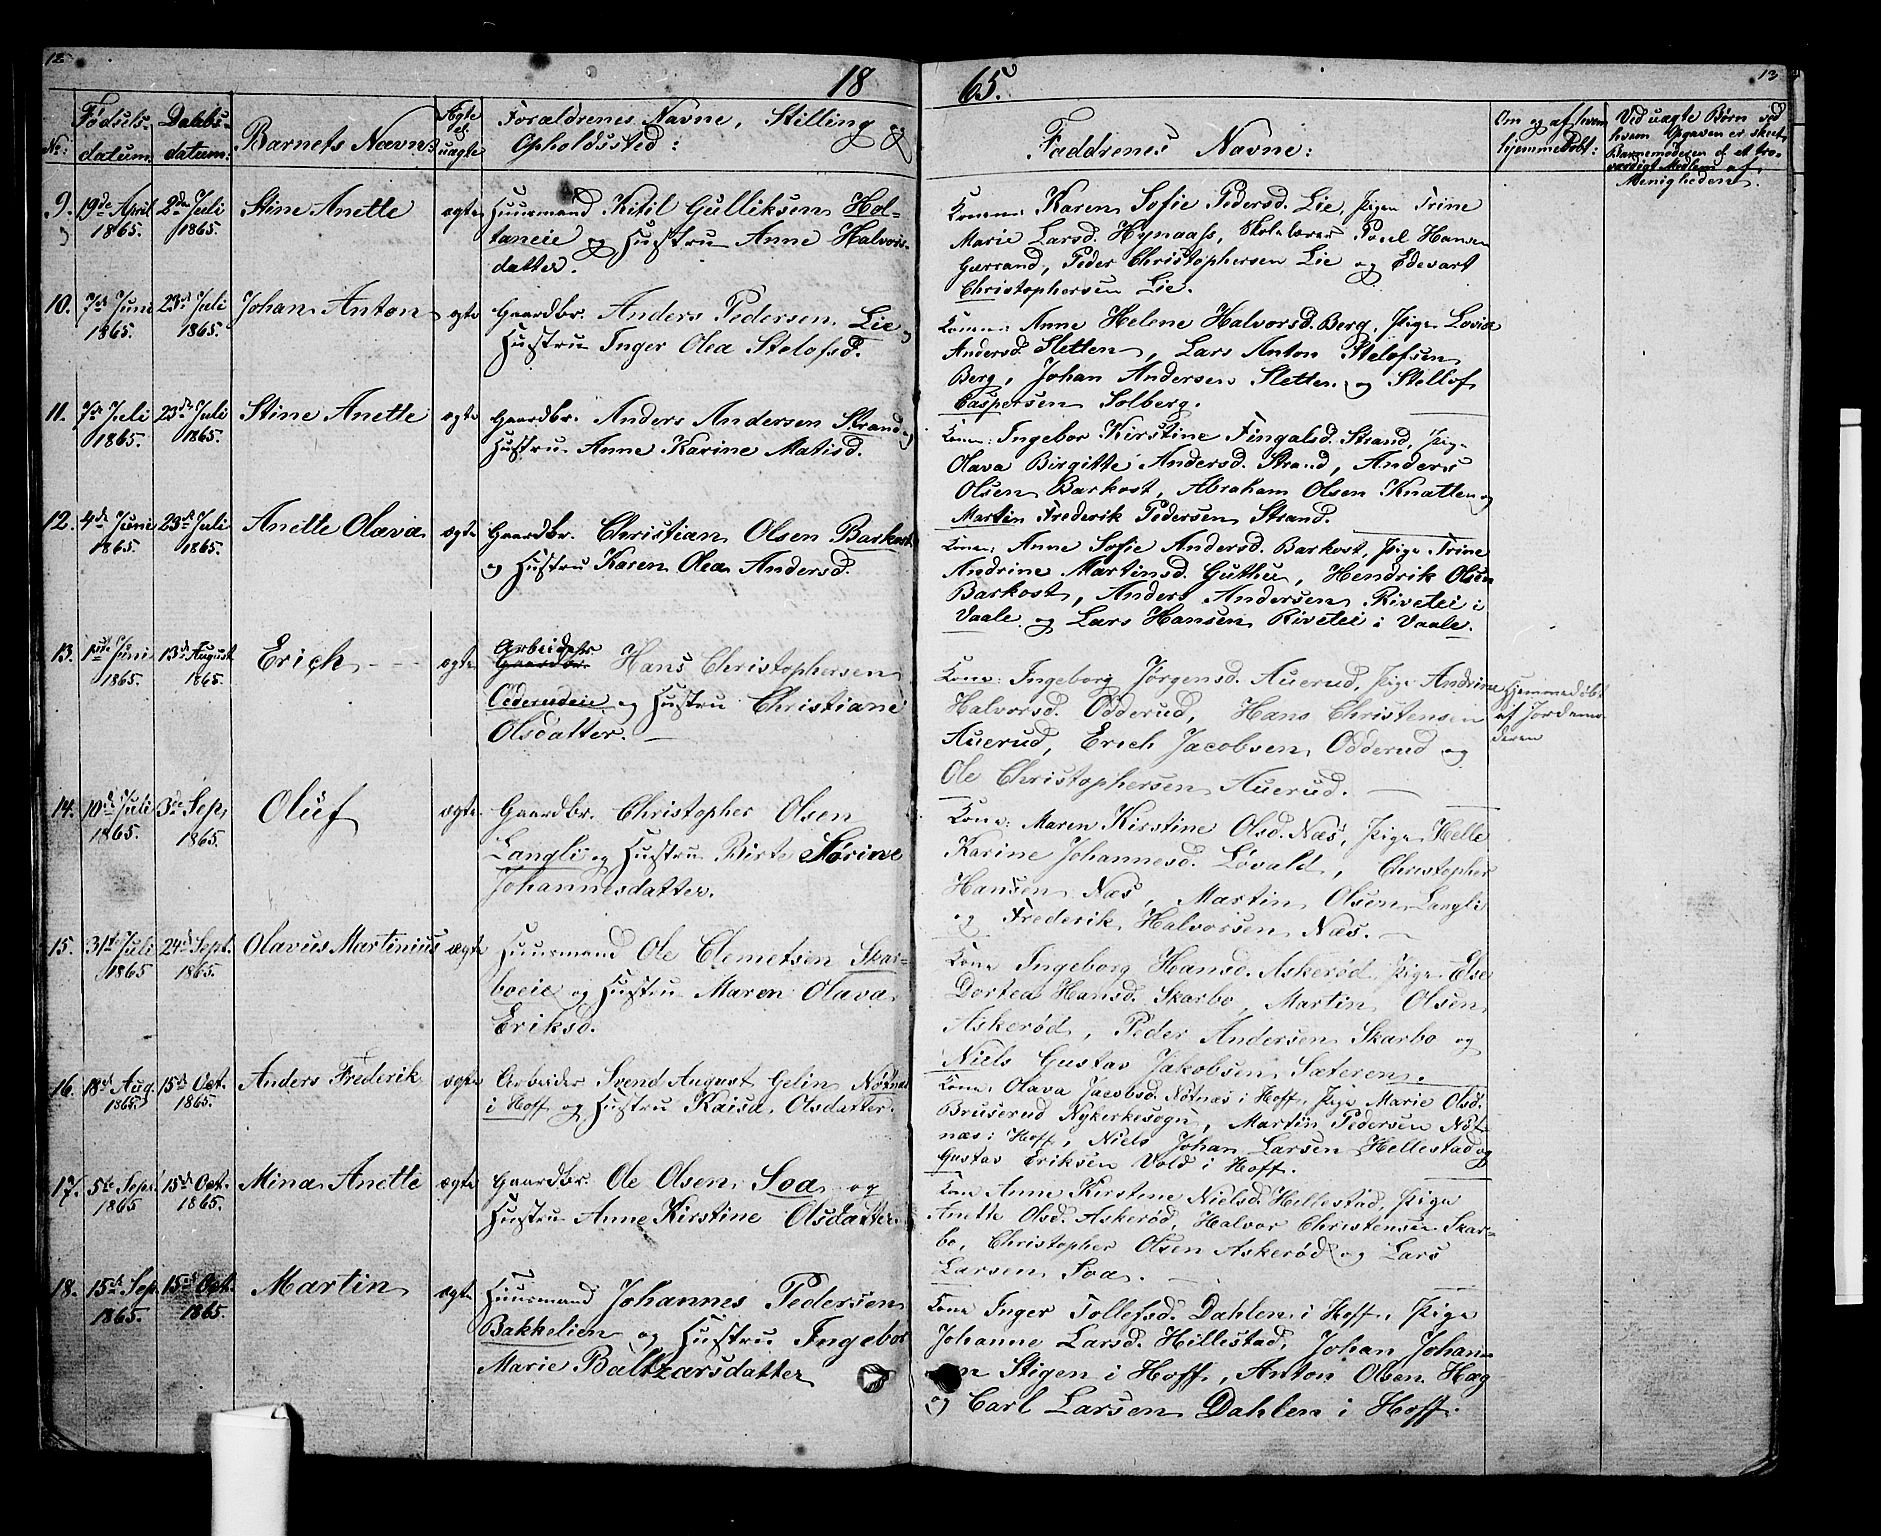 12
18
65.
13
No:
Fødsels-
datum
Daabs-
datum:
Barnets Navn:
Ægte
el.
uægte
Forældrenes Navne, Stilling &
Opholdssted:
Faddrenes Navne:
Om og af hvem
hjemmedøbt:
Ved uægte Børn ved
hvem Opgaven er skeet,
Barnemoderen el. et tro-
værdigt Medlem af
Menigheden.
9.
19de April
1865.
2den Juli
1865.
Stine Anette
ægte
Huusmand Kitil Gulliksen Hol-
taneie og Hustru Anne Halvors-
datter.
Konen: Karen Sofie Pedersd. Lie, Pigen Trine
Marie Larsd. Hynaass, Skolelærer Poul Hansen
Gærrand, Peder Christophersen Lie og Edevart
Christophersen Lie.
10.
7de Juni
1865.
23de Juli
1865.
Johan Anton
ægte
Gaardbr. Anders Pedersen Lie og
Hustru Inger Olea Stelofsd.
Konen: Anne Helene Halvorsd. Berg, Pige Lovise
Andersd. Sletten, Lars Anton Stelofsen
Berg, Johan Andersen Sletten og Stellof
Caspersen Solberg.
11.
7de Juli
1865.
23de Juli
1865.
Stine Anette
ægte
Gaardbr. Anders Andersen Strand og
Hustru Anne Karine Matisd.
Kone: Ingebor Kirstine Fingalsd. Strand, Pige
Olava Birgitte Andersd. Strand, Anders
Olsen Barkost, Abraham Olsen Knatten og
Martin Frederik Pedersen Strand.
12.
4de Juni
1865.
23de Juli
1865.
Anette Olava
ægte
Gaardbr. Christian Olsen Barkost
og Hustru Karen Olea Andersd.
Kone: Anne Sofie Andersd. Barkost, Pige Trine
Andrine Martinsd. Guthu, Hendrik Olsen
Barkost, Anders Andersen Rivetei i
Vaale og Lars Hansen Rivetei i Vaale.
13.
1ste Juni
1865.
13de August
1865.
Erich
ægte
Arbeider
Gaardbr. Hans Christophersen
Odderudeie og Hustru Christiane
Olsdatter.
Kone: Ingeborg Jørgensd. Auerud, Pige Andrine
Halvorsd. Odderud, Hans Christensen
Auerud, Erich Jacobsen Odderud og
Ole Christophersen Auerud.
Hjemmedøbt
af Jordemo-
deren
14.
10de Juli
1865.
3de Sep.
1865.
Oluf
ægte
Gaardbr. Christopher Olsen
Langli og Hustru Birte Sørine
Johannesdatter.
Kone: Maren Kirstine Olsd. Næs, Pige Helle
Karine Johannesd. Løvald, Christopher
Hansen Næs, Martin Olsen Langli
og Frederik Halvorsen Næs.
15.
31te Juli
1865
24de Sept.
1865.
Olavus Martinius
ægte
Huusmand Ole Clemetsen Skar-
boeie og Hustru Maren Olava
Eriksd.
Kone Ingeborg Hansd. Askerød, Pige Else
Dortea Hansd. Skarbo, Martin Olsen
Askerød, Peder Andersen Skarbo og
Niels Gustav Jakobsen Sæteren.
16.
18de Aug.
1865.
15de Oct.
1865.
Anders Frederik
ægte
Arbeider Svend August Gelin Nøtnæs
i Hoff og Hustru Kaisa Olsdatter.
Kone: Olava Jacobsd. Nøtnæs i Hoff, Pige Marie Olsd.
Bruserud Nykerkesogn, Martin Pedersen Nøt-
næs i Hoff, Niels Johan Larsen Hellestad og
Gustav Eriksen Vold i Hoff.
17.
5te Sep.
1865
15de Oct.
1865.
Mina Anette
ægte
Gaardbr. Ole Olsen Soa og
Hustru Anne Kirstine Olsdatter.
Kone Anne Kirstine Nielsd. Hillestad, Pige
Anette Olsd. Askerød, Halvor Christensen Skar-
bo, Christopher Olsen Askerød og Lars
Larsen Soa.
18.
15de Sep.
1865.
15de Oct.
1865.
Martin
ægte
Huusmand Johannes Pedersen
Bakkelien og Hustru Ingebor
Marie Baltzarsdatter
Kone Inger Tollefsd. Dahlen i Hoff, Pige
Johanne Larsd. Hillestad, Johan Johan-
en Stigen i Hoff, Anton Olsen Hæg
og Carl Larsen Dahlen i Hoff.